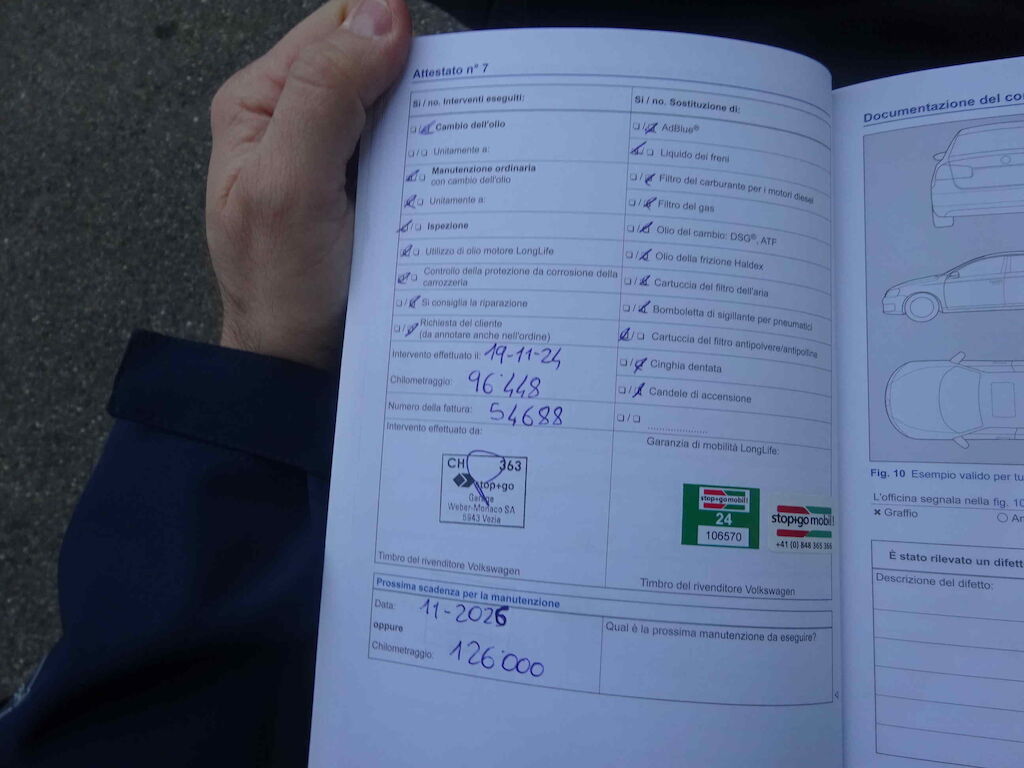 Attestato n° 7
Si / no. Interventi eseguiti:
Cambio dell'olio
Unitamente a:
Manutenzione ordinaria
con cambio dell'olio
Unitamente a:
Ispezione
Utilizzo di olio motore LongLife
Controllo della protezione da corrosione della
carrozzeria
Si consiglia la riparazione
Richiesta del cliente
(da annotare anche nell'ordine)
Intervento effettuato il: 19-11-24
Chilometraggio: 96'448
Numero della fattura: 54688
Intervento effettuato da:
CH 363
stop+go
Garage
Weber-Monaco SA
Timbro del rivenditore Volkswagen
Si / no. Sostituzione di:
AdBlue®
Liquido dei freni
Filtro del carburante per i motori diesel
Filtro del gas
Olio del cambio: DSG®, ATF
Olio della frizione Haldex
Cartuccia del filtro dell'aria
Bomboletta di sigillante per pneumatici
Cartuccia del filtro antipolvere/antipolline
Cinghia dentata
Candele di accensione
Garanzia di mobilità LongLife:
stop+go mobil!
24
106570
stop+go mobil!
+41 (0) 848 365 365
Timbro del rivenditore Volkswagen
Prossima scadenza per la manutenzione
Data: 11-2026
oppure
Chilometraggio: 126'000
Qual è la prossima manutenzione da eseguire?
Documentazione del
Fig. 10 Esempio valido per
L'officina segnala nella fig. 10
Graffio
È stato rilevato un
Descrizione del difetto: